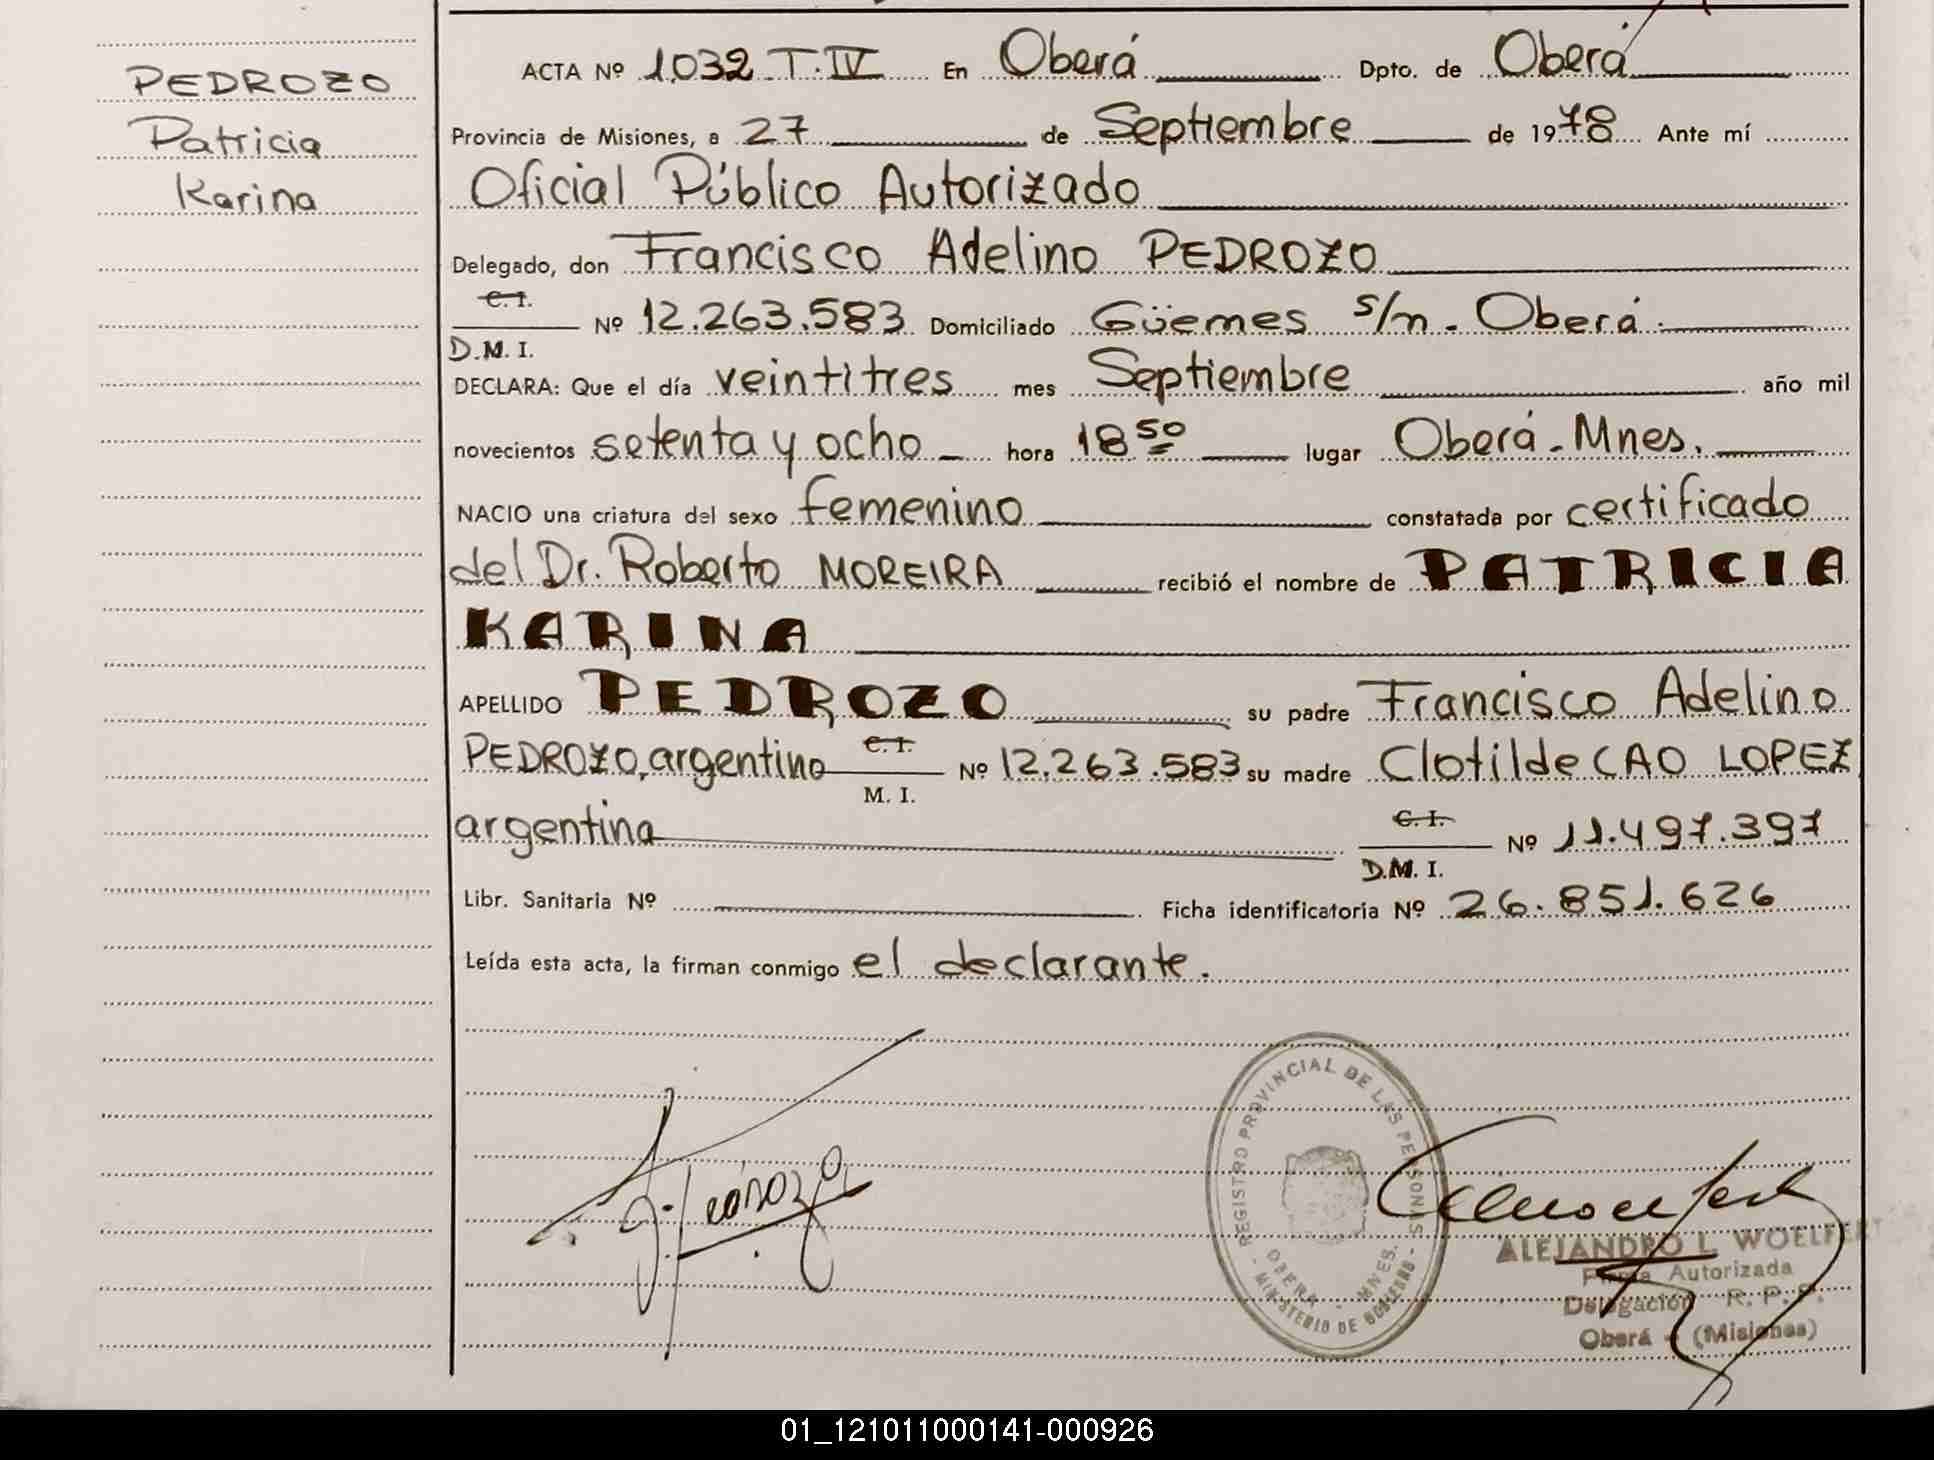 PEDROZO
Patricia
Karina
ACTA Nº 1.032 T.IV En Oberá Dpto. de Oberá
Provincia de Misiones, a 27 de Septiembre de 1978 Ante mí
Oficial Público Autorizado
Delegado, don Francisco Adelino PEDROZO
C.I.
Nº 12.263.583 Domiciliado Güemes s/n. Oberá.
D.M.I.
DECLARA: Que el día veintitres mes Septiembre año mil
novecientos setenta y ocho hora 18 50 lugar Oberá - Mnes.
NACIO una criatura del sexo femenino constatada por certificado
del Dr. Roberto MOREIRA recibió el nombre de PATRICIA
KARINA
APELLIDO PEDROZO su padre Francisco Adelino
PEDROZO, argentino C.I. Nº 12.263.583 su madre Clotilde CAO LOPEZ
M. I.
argentina C.I. Nº 11.497.397
D.M. I.
Libr. Sanitaria Nº Ficha identificatoria Nº 26.851.626
Leída esta acta, la firman conmigo el declarante.
REGISTRO PROVINCIAL DE LAS PERSONAS
OBERA - MNES.
- MINISTERIO DE GOBIERNO -
ALEJANDRO L. WOELFERT
Firma Autorizada
Delegación R. P. P.
Oberá - (Misiones)
01_121011000141-000926